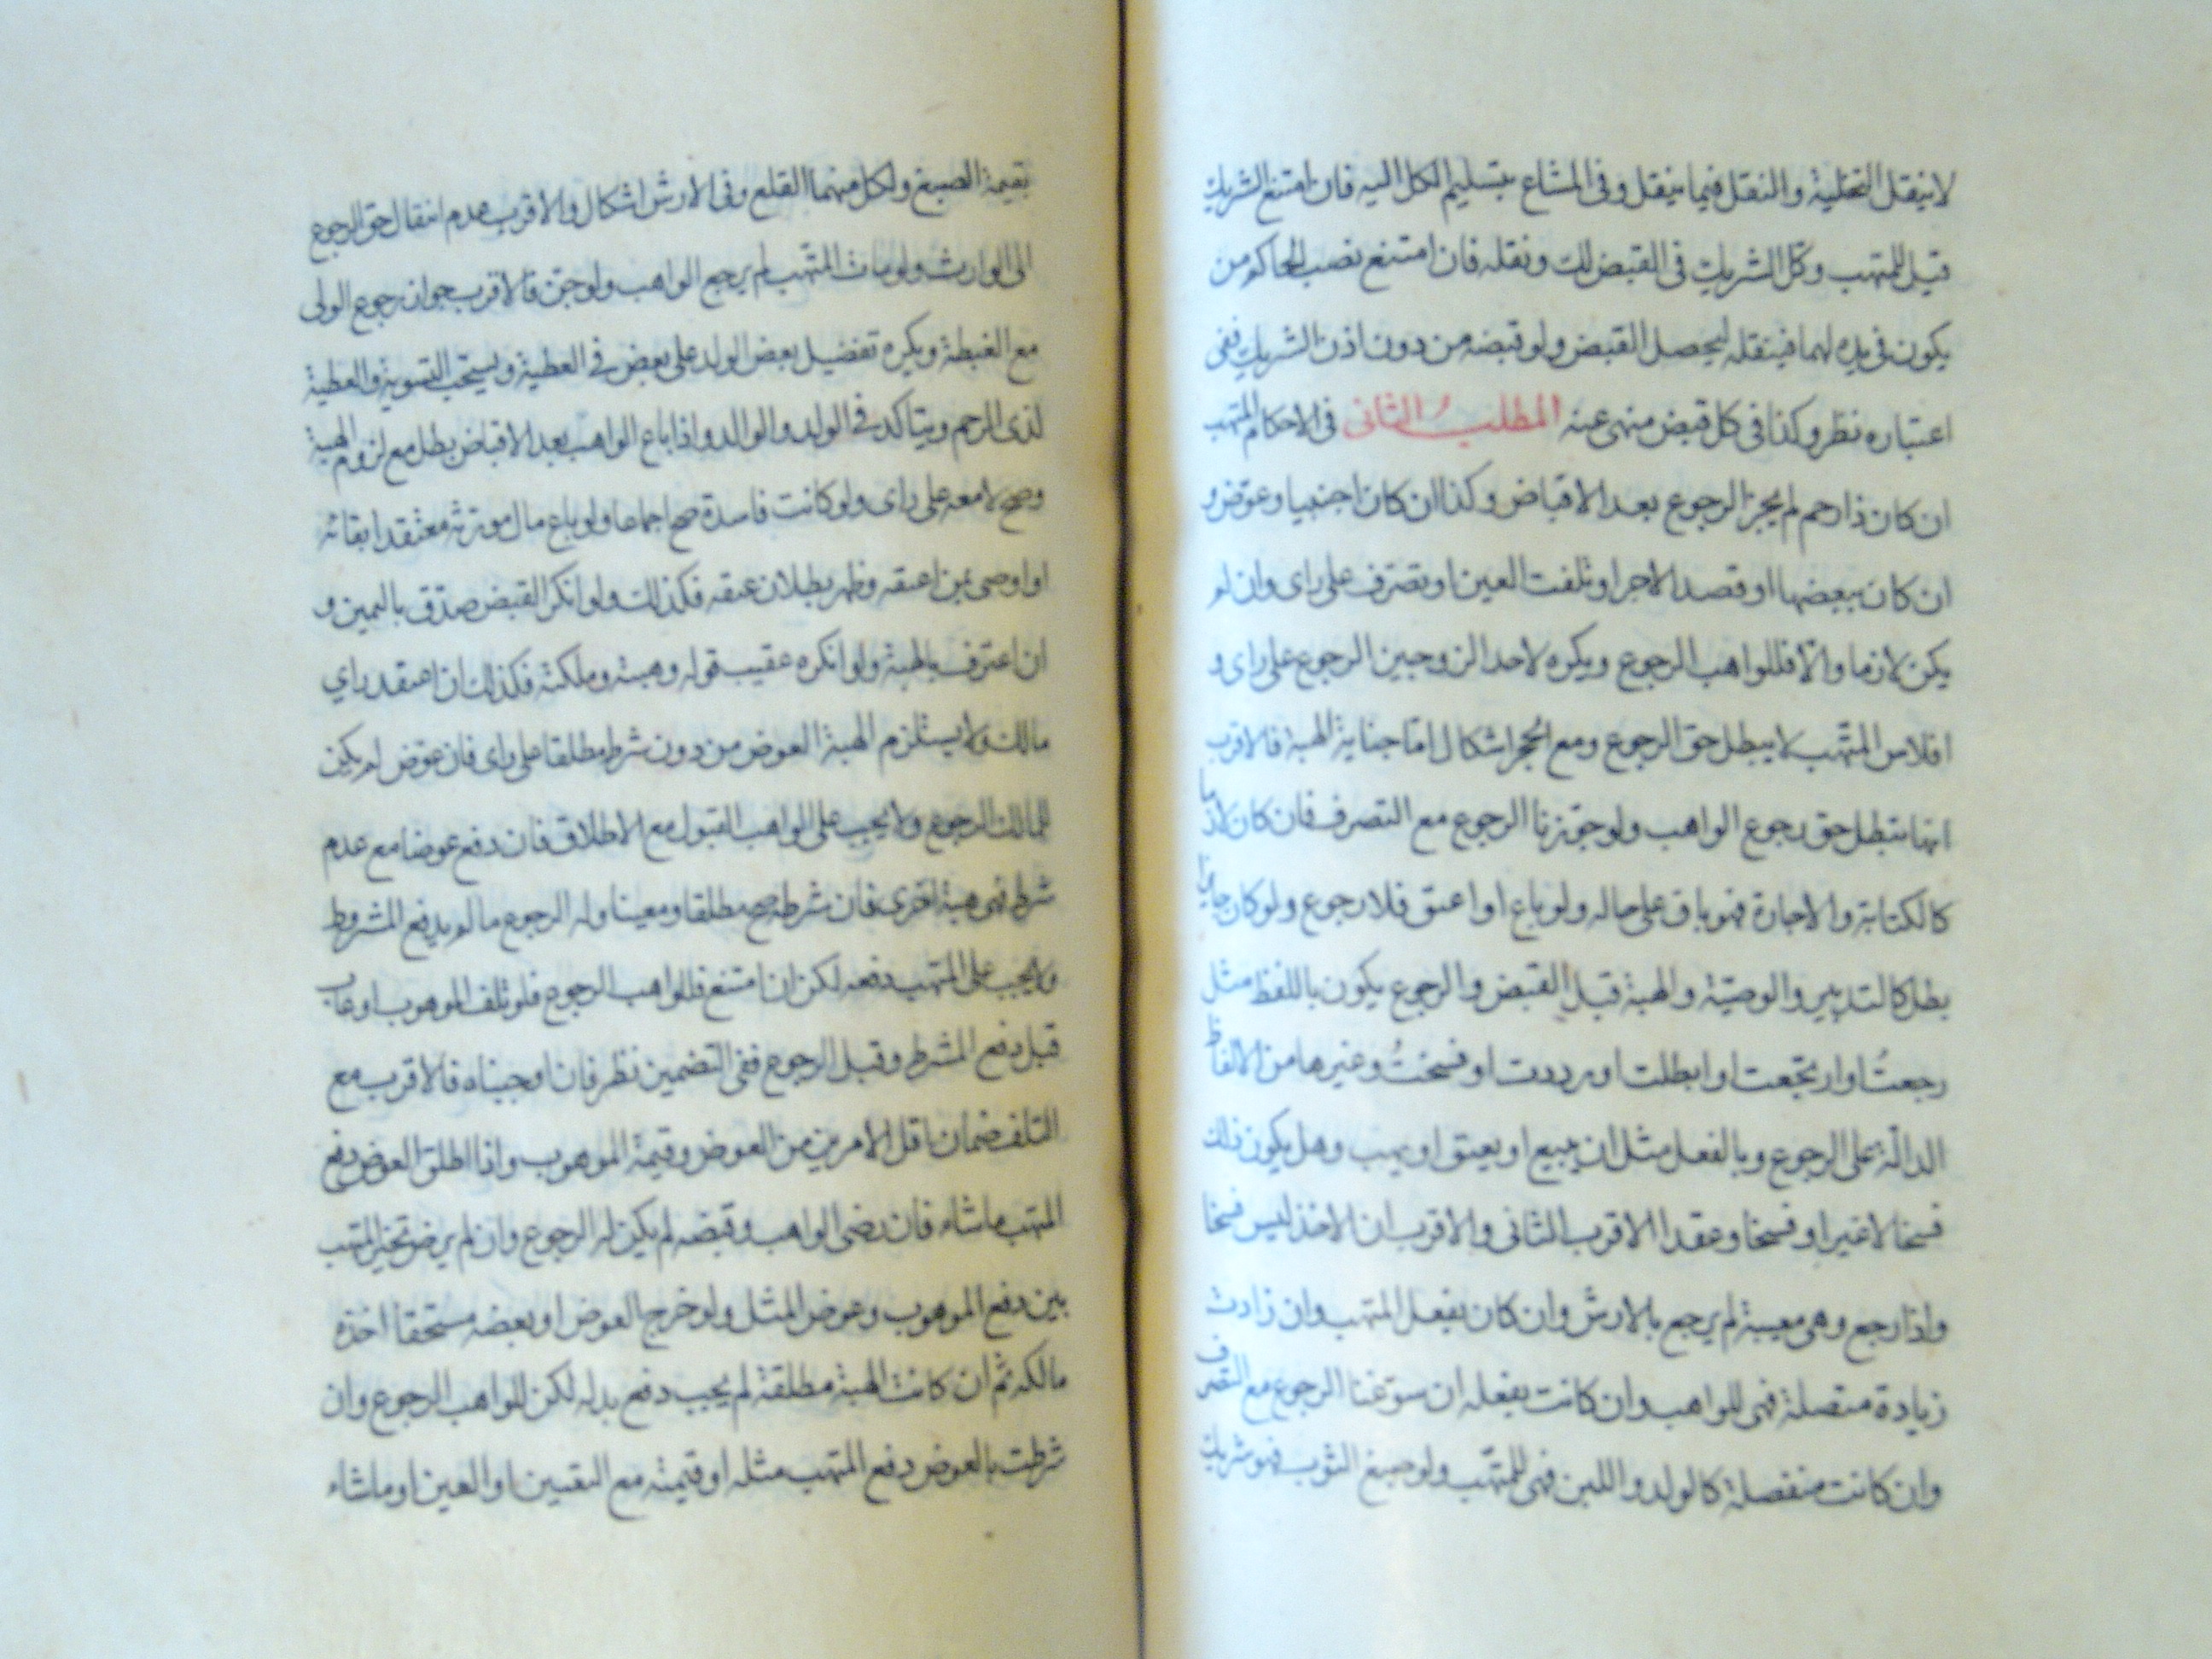 لا ينقل التخلية والنقل فيما ينقل وفى المشاع بتسليم الكل اليه فان امتنع الشريك
قيل للمتهب وكّل الشريك فى القبض لك ونقله فان امتنع نصب الحاكم من
يكون فى يده لهما فينقله ليحصل القبض ولو قبضه من دون اذن الشريك ففى
اعتباره نظر وكذا فى كل قبض منهى عنه المطلب الثانى فى الاحكام المتهب
ان كان ذا رحم لم يجز الرجوع بعد الاقباض وكذا ان كان اجنبيا وعوّض و
ان كان ببعضها او قصد الاجر او تلفت العين او تصرّف على راى وان لم
يكن لازما والّا فللواهب الرجوع ويكره لاحد الزوجين الرجوع على راى و
افلاس المتّهب لا يبطل حق الرجوع ومع الحجر اشكال امّا جناية الهبة فالاقرب
انها تبطل حق رجوع الواهب ولو جوّزنا الرجوع مع التصرف فان كان لازما
كالكتابة والاجارة فهو باق على حاله ولو باع او اعتق فلا رجوع ولو كان جايزا
بطل كالتدبير والوصيّة والهبة قبل القبض والرجوع يكون باللفظ مثل
رجعتُ او ارتجعت او ابطلت او رددت او فسختُ وغيرها من الالفاظ
الدالّة على الرجوع وبالفعل مثل ان يبيع او يعتق او يهب وهل يكون ذلك
فسخا لا غير او فسخا وعقدا الاقرب الثانى والاقرب ان الاخذ ليس فسخا
واذا رجع وهى معيبة لم يرجع بالارش وان كان بفعل المتهب وان زادت
زيادة متصلة فهى للواهب وان كانت بفعله ان سوّغنا الرجوع مع التصرف
وان كانت منفصلة كالولد واللبن فهى للمتّهب ولو صبغ الثوب فهو شريك
بقيمة الصبغ ولكل منهما القلع وفى الارش اشكال والاقرب عدم انتقال حق الرجوع
الى الوارث ولو مات المتّهب لم يرجع الواهب ولو جنّ فالاقرب جواز رجوع الولى
مع الغبطة ويكره تفضيل بعض الولد على بعض فى العطية ويستحب التسوية والعطية
لذى الرحم ويتاكد فى الولد والوالد واذا باع الواهب بعد الاقباض بطل مع لزوم الهبة
وصح لا معه على راى ولو كانت فاسدة صح اجماعا ولو باع مال مورّثه معتقدا بقائه
او اوصى بمن اعتقه وظهر بطلان عتقه فكذلك ولو انكر القبض صدّق باليمين و
ان اعترف بالهبة ولو انكره عقيب قوله وهبته وملكته فكذلك ان اعتقد راي
مالك ولا يستلزم الهبة العوض من دون شرط مطلقا على راى فان عوّض لم يكن
للمالك الرجوع ولا يجب على الواهب القبول مع الاطلاق فان دفع عوضا مع عدم
شرط فهى هبة اخرى فان شرط صح مطلقا ومعينا وله الرجوع ما لم يدفع المشروط
ولا يجب على المتهب دفعه لكن ان امتنع فللواهب الرجوع فلو تلف الموهوب او عاب
قبل دفع المشرط وقبل الرجوع ففى التضمين نظر فان اوجبناه فالاقرب مع
التلف ضمان اقل الامرين من العوض وقيمة الموهوب واذا اطلق العوض دفع
المتهب ما شاء فان رضى الواهب وقبضه لم يكن له الرجوع وان لم يرض تخير المتهب
بين دفع الموهوب وعوض المثل ولو خرج العوض او بعضه مستحقا اخذه
مالكه ثم ان كانت الهبة مطلقة لم يجب دفع بدله لكن للواهب الرجوع وان
شرطت بالعوض دفع المتهب مثله او قيمته مع التعيين او العين او ما شاء